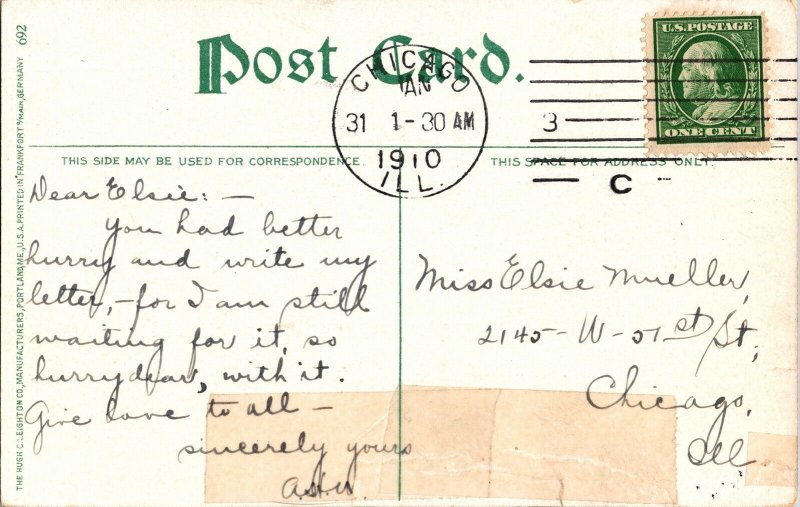 Post Card.
CHICAGO
JAN
31 1-30 AM
1910
ILL.
3
C
U.S.POSTAGE
ONE CENT
THIS SIDE MAY BE USED FOR CORRESPONDENCE.
THIS SPACE FOR ADDRESS ONLY.
Dear Elsie: —
You had better
hurry and write my
letter, — for I am still
waiting for it, so
hurry dear, with it.
Give love to all —
sincerely yours
Miss Elsie Mueller,
2145 - W - 51st St,
Chicago,
Ill
THE HUGH C. LEIGHTON CO., MANUFACTURERS, PORTLAND, ME., U.S.A. PRINTED IN FRANKFORT o/MAIN, GERMANY 692